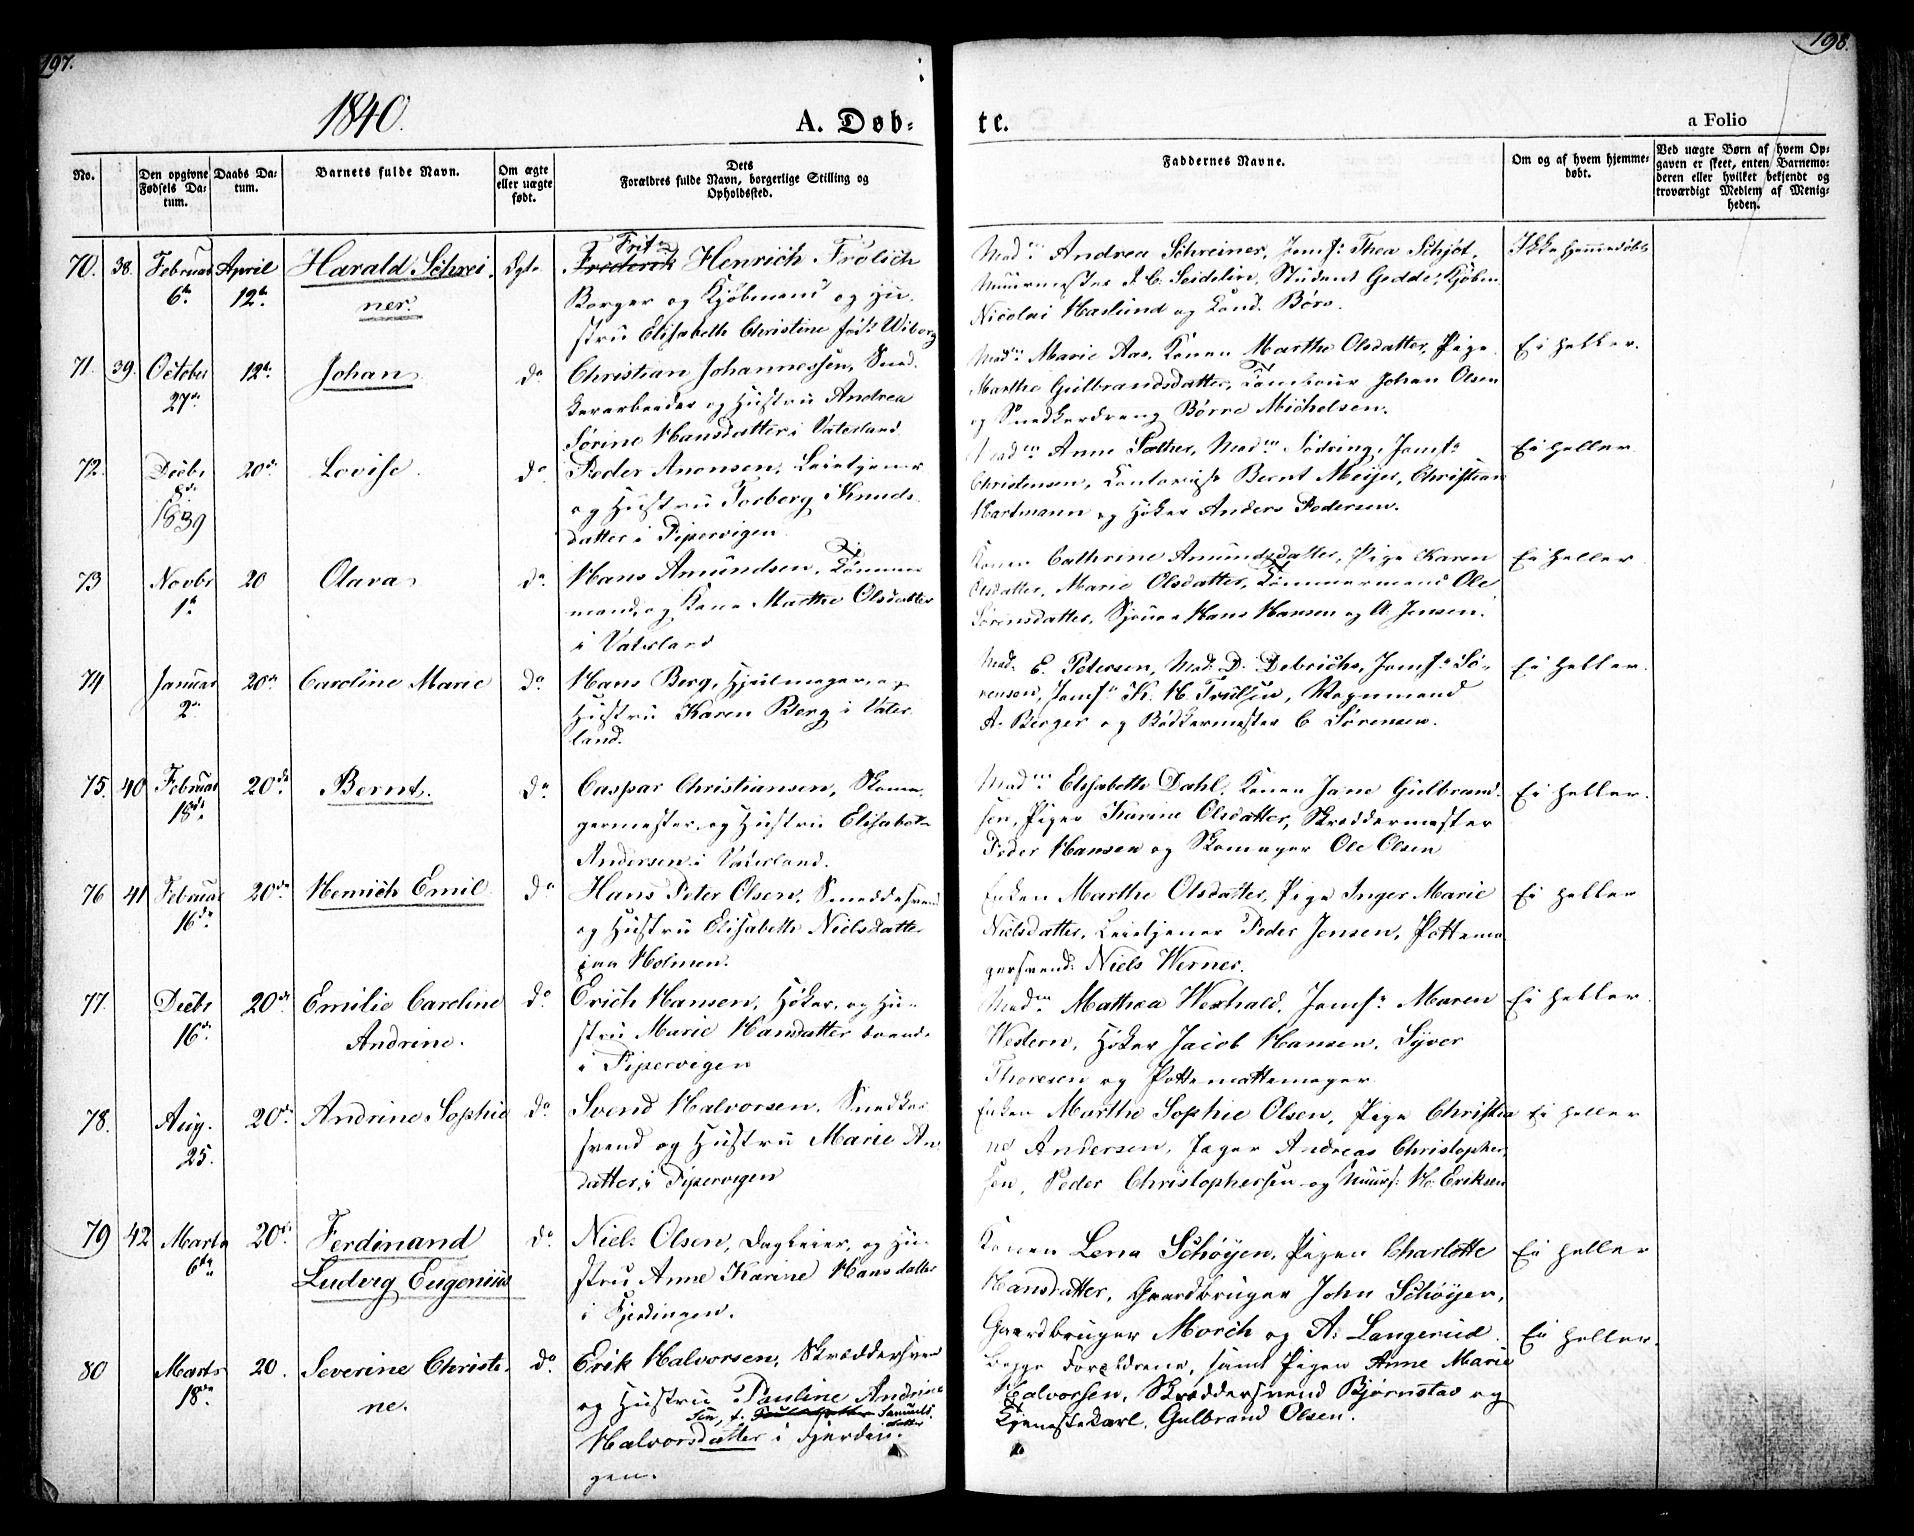 197.
198.
1840.
A. Døb-
te.
a Folio
No.
Den opgivne Fødsels Datum.
Daabs Datum.
Barnets fulde Navn.
Om ægte eller uægte født.
Dets Forældres fulde Navn, borgerlige Stilling og Opholdssted.
Faddernes Navne.
Om og af hvem hjemmedøbt.
Ved uægte Børn af hvem Opgaven er skeet, enten Barnemoderen eller hvilket bekjendt og troværdigt Medlem af Menigheden.
70. 38. Februar 6te April 12te Harald Schreiner. Ægte
Fritz
Frederik Henrich Frölich
Borger og Kjøbmand og Hu-
stru Elisabeth Christine fød: Wiborg
Madm Andrea Schreiner, Jomf: Thea Schjøt,
Muurmester J. C. Seidelin, Student Gedde, Kjøbm.
Nicolai Haslund og Cand. Børs.
Ikke hjemmedøbt
71. 39. October 27de 12te Johan do
Christian Johannessen, Sned-
kerarbeider og Hustru Andrea
Sørine Hansdatter i Vaterland
Madm Marie Aas, Konen Marthe Olsdatter, Pige
Marthe Gulbrandsdatter, Tambour Johan Olsen
og Snedkerdreng Børre Michelsen.
Ei heller.
72. Decbr 8de 1839 20de Lovise do
Peder Anonsen, Leietjener
og Hustru Torborg Knuds-
datter i Pipervigen
Madm Anne Sæther, Madm Sødring, Jomf:
Christensen, Contorist Bernt Meijer, Christian
Hartmann og Høker Anders Pedersen.
Ei heller
73 Novbr 1te 20 Olava do
Hans Amundsen, Tømmer-
mand, og Kone Marthe Olsdatter
i Vaterland
Konen Cathrine Amundsdatter, Pige Karen
Olsdatter, Marie Olsdatter, Tømmermand Ole
Sørensdatter, Hans Hansen og A. Jensen.
Ei heller
74 Januar 2den 20de Caroline Marie do
Hans Berg, Hjulmager og
Hustru Karen Berg i Vater
land.
Mad. E. Petersen, Mad. D. Debrichs, Jomf: Sø-
rensen, Jomf: K. H. Trulsen, Vognmand
A. Berger og Bødkermester C. Sørensen.
Ei heller.
75. 40 Februar 18de 20de Bernt. do
Caspar Christiansen, Skoma-
germester og Hustru Elisabeth
Andersen i Vaterland.
Madm Elisabeth Dahl, Konen Jane Gulbrand-
sen, Pigen Karine Olsdatter, Skræddermester
Peder Hansen og Skomager Ole Olsen
Ei heller.
76 41 Februar 16de 20de Henrich Emil do
Hans Peter Olsen, Smeddesvend
og Hustru Elisabeth Nielsdatter
paa Holmen.
Enken Marthe Olsdatter, Pige Inger Marie
Nielsdatter, Leietjener Peder Jensen, Pottema-
gersvend Niels Werner.
Ei heller
77. Decbr 16de 20de Emilie Caroline Andrine. do
Erich Hansen, Høker, og Hu-
stru Marie Hansdatter boende
i Pipervigen
Madm Mathea Wexhald, Jomf: Maren
Western, Høker Jacob Hansen, Syver
Thoresen og Pottemager
Ei heller.
78. Aug. 25. 20de Andrine Sophie do
Svend Halvorsen, Snedker
svend og Hustru Marie An
datter, i Pipervigen
Enken Marthe Sophie Olsen, Pige Christia
ne Andersen, Jæger Andreas Christopher-
sen, Peder Christophersen og Muurs: H. Eriksen
Ei heller
79 42 Marts 6te 20de Ferdinand Ludvig Eugenius do
Niels Olsen, Dagleier, og Hu-
stru Anne Karine Hansdatter
i Fjerdingen.
Konen Lena Schøyen, Pigen Charlotte
Hansdatter, Gaardbruger John Schøyen,
Gaardbruger Morch og A. Langerud.
Ei heller
80 Marts 18de 20. Severine Christi- ne. do
Erik Halvorsen, Skræddersven
og Hustru Pauline Andrine
Samuels-
datter
Halvorsdatter i Fjerdin-
gen.
Begge Forældrene, samt Pigen Anne Marie
Halvorsen, Skræddersvend Bjørnstad og
Tjenestekarl Gulbrand Olsen.
Ei heller.